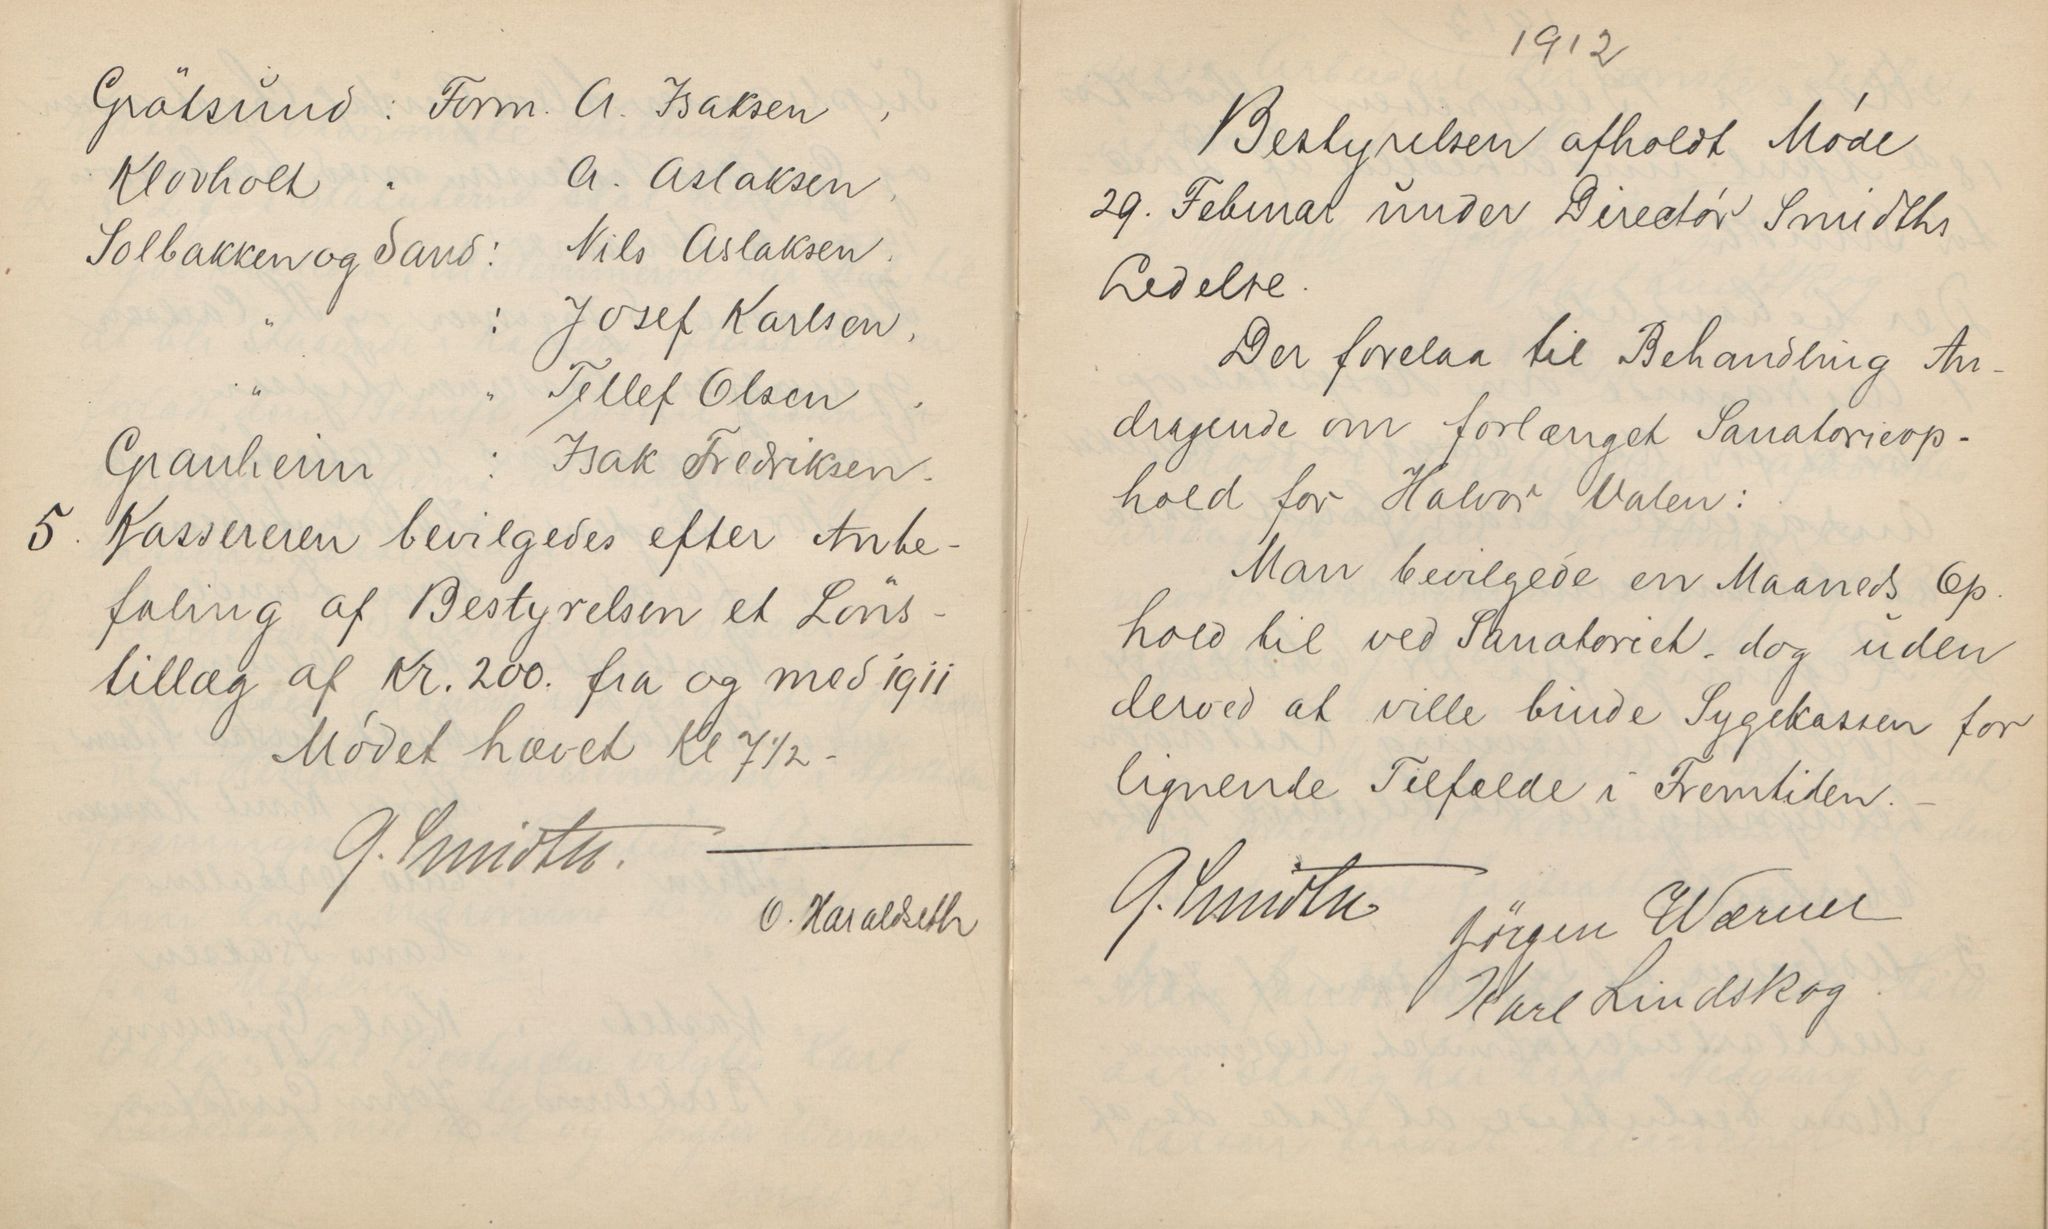 Grötsund : Form. A. Isaksen ,
Klovholt " A. Aslaksen ,
Solbakken og Sand : Nils Aslaksen .
" : Josef Karlsen ,
" " Tellef Olsen ,
Granheim : Isak Fredriksen .
5. Kassereren bevilgedes efter Anbe-
faling af Bestyrelsen et Löns-
tillæg af Kr. 200. fra og med 1911
Mødet hævet Kl 7 1/2 -
G. Smidth.
O. Haraldseth
1912
Bestyrelsen afholdt Møde
29. Februar under Directør Smidths
Ledelse.
Der forelaa til Behandling An-
dragende om forlænget Sanatorieop-
hold for Halvor Valen:
Man bevilgede en Maaneds Op.
hold til ved Sanatoriet - dog uden
derved at ville binde Sygekassen for
lignende Tilfælde i Fremtiden. -
G. Smidth
Jörgen Wærner
Karl Lindskog.